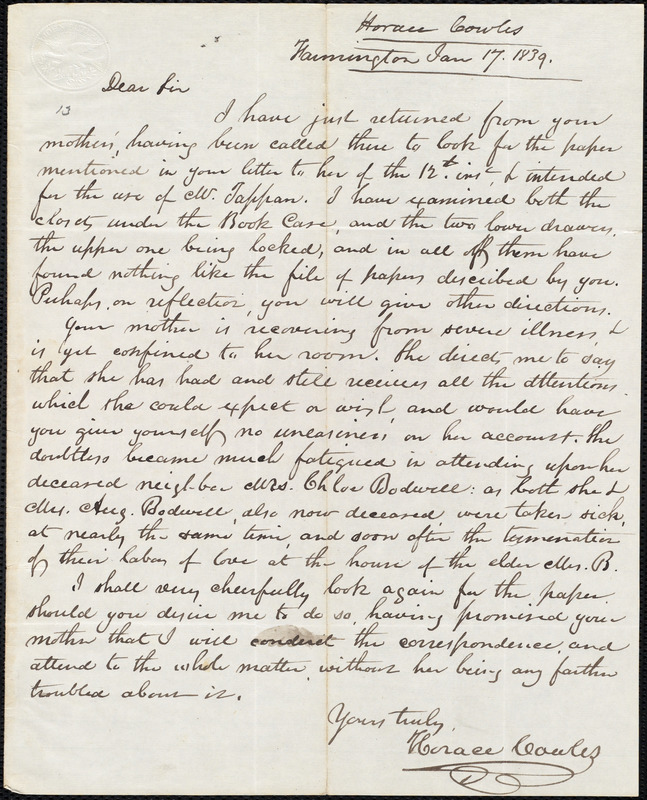 Horace Cowles
Farmington Jan 17. 1839.
Dear Sir
13
I have just returned from your
mother's, having been called there to look for the paper
mentioned in your letter to her of the 12th. inst, & intended
for the use of Mr. Tappan. I have examined both the
closets under the Book Case, and the two lower drawers,
the upper one being locked, and in all of them have
found nothing like the file of papers described by you.
Perhaps, on reflection, you will give other directions.
Your mother is recovering from severe illness, &
is yet confined to her room. She directs me to say
that she has had and still receives all the attentions
which she could expect or wish, and would have
you give yourself no uneasiness, on her account. She
doubtless became much fatigued in attending upon her
deceased neighbor Mrs. Chloe Bodwell: as both she &
Mrs. Aug. Bodwell, also now deceased, were taken sick,
at nearly the same time, and soon after the termination
of their labor of love at the house of the elder Mrs. B.
I shall very cheerfully look again for the paper
should you desire me to do so, having promised your
mother that I will conduct the correspondence, and
attend to the whole matter, without her being any farther
troubled about it.
Yours truly,
Horace Cowles